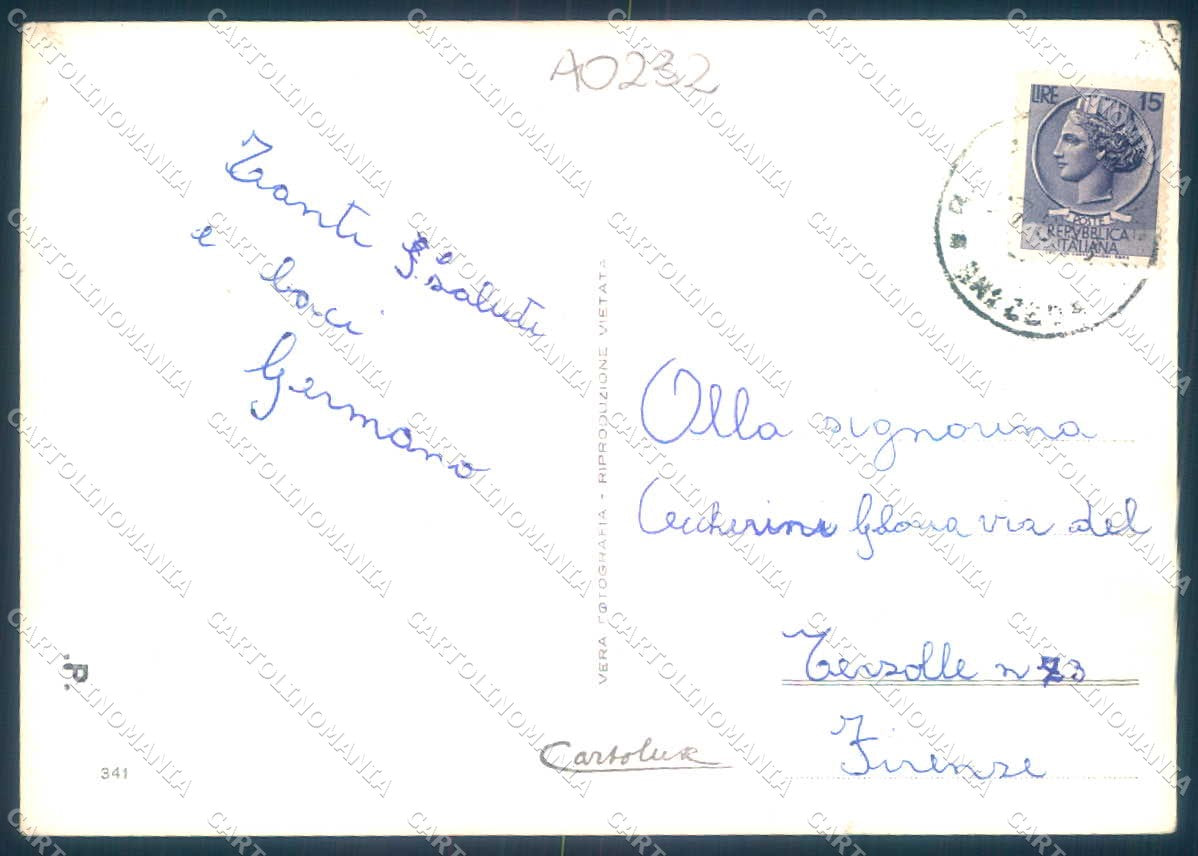 A0232
LIRE 15
POSTE
REPVBBLICA
ITALIANA
Tanti saluti
e baci
Germano
VERA FOTOGRAFIA - RIPRODUZIONE VIETATA
Alla signorina
Ceccherini Gloria via del
Terzolle n 73
Firenze
.P.
341
Cartolux
CARTOLINOMANIA